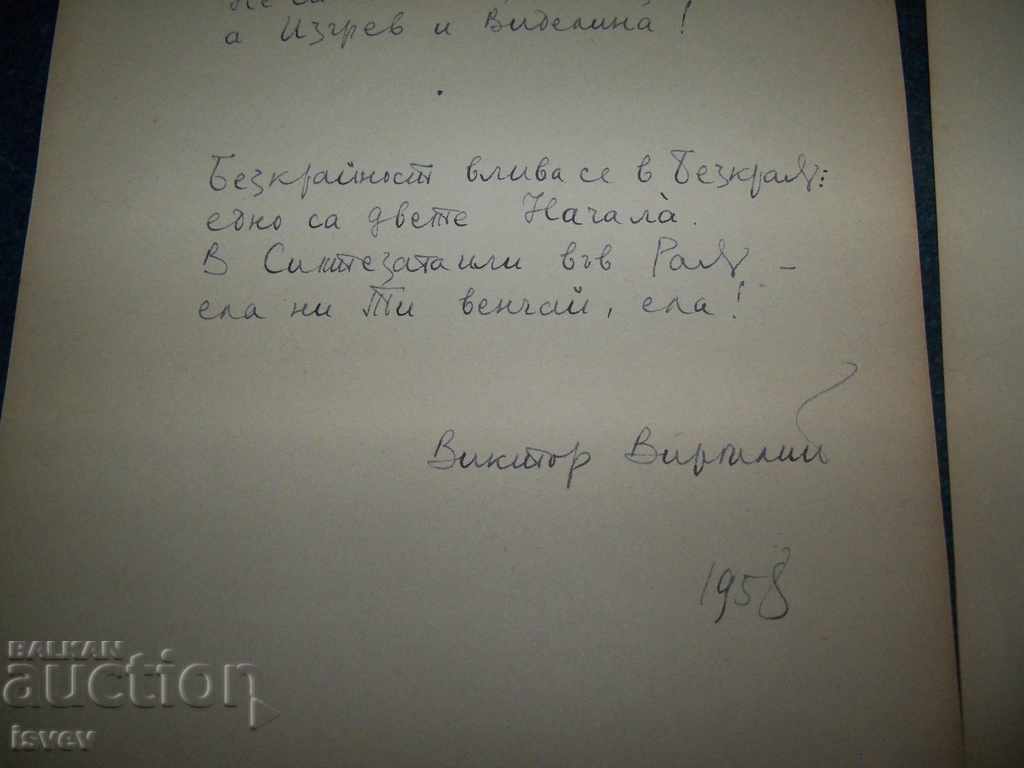 а Изгрев и Виделина!
Безкрайност влива се в Безкрая:
едно са двете Начала.
В Синтезата или във Рая –
ела ни Ти венчай, ела!
Виктор
1958
BALKAN
auction
isvev